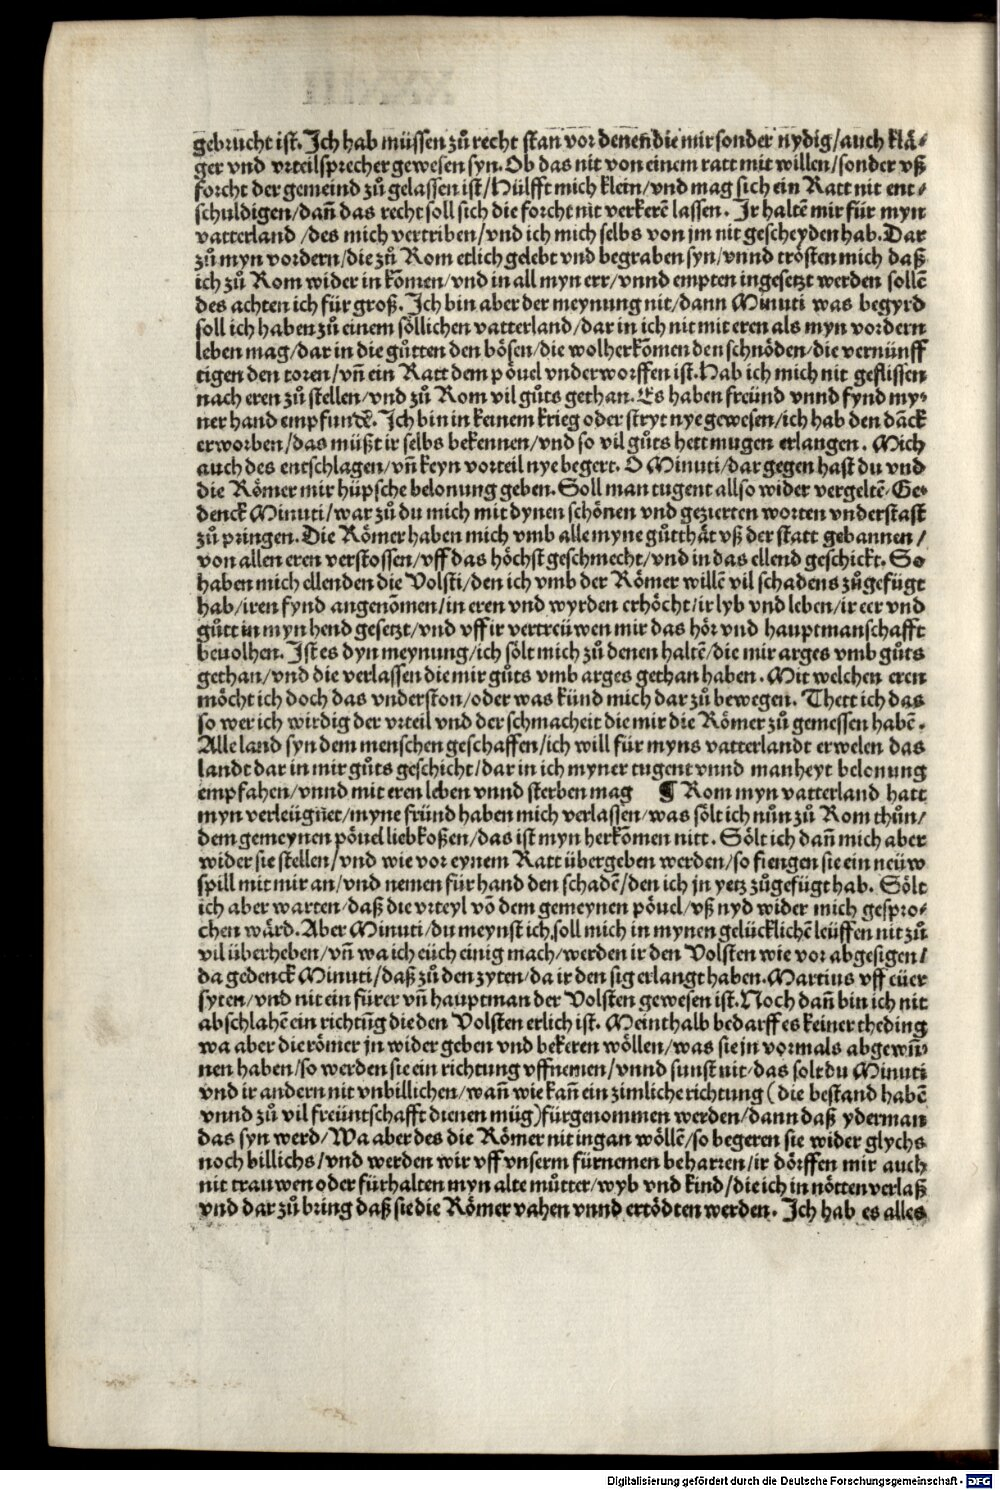 gebrucht ist. Ich hab müssen zů recht stan vor denen die mir sonder nydig/auch klä⸗
ger vnd vrteilsprecher gewesen syn. Ob das nit von einem ratt mit willen/sonder vß
forcht der gemeind zů gelassen ist/Hülfft mich klein/vnd mag sich ein Ratt nit ent⸗
schuldigen/dañ das recht soll sich die forcht nit verkerẽ lassen. Ir haltẽ mir für myn
vatterland /des mich vertriben/vnd ich mich selbs von jm nit gescheyden hab. Dar
zů myn vordern/die zů Rom etlich gelebt vnd begraben syn/vnnd trösten mich daß
ich zů Rom wider in kõmen/vnd in all myn err/vnnd empten ingesetzt werden sollẽ
des achten ich für groß. Ich bin aber der meynung nit/dann Minuti was begyrd
soll ich haben zů einem söllichen vatterland/dar in ich nit mit eren als myn vordern
leben mag/dar in die gůtten den bösen/die wolherkõmen den schnöden/die vernünff
tigen den toren/vñ ein Ratt dem pöuel vnderworffen ist. Hab ich mich nit geflissen
nach eren zů stellen/vnd zů Rom vil gůts gethan. Es haben freünd vnnd fynd my⸗
ner hand empfundẽ. Ich bin in keinem krieg oder stryt nye gewesen/ich hab den dãck
erworben/das müßt ir selbs bekennen/vnd so vil gůts hett mugen erlangen. Mich
auch des entschlagen/vñ keyn vorteil nye begert. O Minuti/dar gegen hast du vnd
die Römer mir hüpsche belonung geben. Soll man tugent allso wider vergeltẽ. Ge⸗
denck Minuti/war zů du mich mit dynen schönen vnd gezierten worten vnderstast
zů pringen. Die Römer haben mich vmb alle myne gůtthät vß der statt gebannen/
von allen eren verstossen/vff das höchst geschmecht/vnd in das ellend geschickt. So
haben mich ellenden die Volsti/den ich vmb der Römer willẽ vil schadens zůgefügt
hab/iren fynd angenõmen/in eren vnd wyrden erhöcht/ir lyb vnd leben/ir eer vnd
gůtt in myn hend gesetzt/vnd vff ir vertreüwen mir das hör vnd hauptmanschafft
beuolhen. Ist es dyn meynung/ich sölt mich zů denen haltẽ/die mir arges vmb gůts
gethan/vnd die verlassen die mir gůts vmb arges gethan haben. Mit welchen eren
möcht ich doch das vnderston/oder was künd mich dar zů bewegen. Thett ich das
so wer ich wirdig der vrteil vnd der schmacheit die mir die Römer zů gemessen habẽ.
Alle land syn dem menschen geschaffen/ich will für myns vatterlandt erwelen das
landt dar in mir gůts geschicht/dar in ich myner tugent vnnd manheyt belonung
empfahen/vnnd mit eren leben vnnd sterben mag ¶ Rom myn vatterland hatt
myn verleügnet/myne fründ haben mich verlassen/was sölt ich nůn zů Rom thůn/
dem gemeynen pöuel liebkoßen/das ist myn herkõmen nitt. Sölt ich dañ mich aber
wider sie stellen/vnd wie vor eynem Ratt übergeben werden/so fiengen sie ein neüw
spill mit mir an/vnd nemen für hand den schadẽ/den ich jn yetz zůgefügt hab. Sölt
ich aber warten/daß die vrteyl võ dem gemeynen pöuel/vß nyd wider mich gespro⸗
chen wärd. Aber Minuti/du meynst ich,soll mich in mynen gelücklichẽ leüffen nit zů
vil überheben/vñ wa ich eüch einig mach/werden ir den Volsten wie vor abgesigen/
da gedenck Minuti/daß zů den zyten/da ir den sig erlangt haben. Martius vff eüer
syten/vnd nit ein fürer vñ hauptman der Volsten gewesen ist. Noch dañ bin ich nit
abschlahẽ ein richtũg die den Volsten erlich ist. Meinthalb bedarff es keiner theding
wa aber die römer jn wider geben vnd bekeren wöllen/was sie jn vormals abgewũ⸗
nen haben/so werden sie ein richtung vffnemen/vnnd sunst nit/das solt du Minuti
vnd ir andern nit vnbillichen/wañ wie kañ ein zimliche richtung (die bestand habẽ
vnnd zů vil freüntschafft dienen müg) fürgenommen werden/dann daß yderman
das syn werd/Wa aber des die Römer nit ingan wöllẽ/so begeren sie wider glychs
noch billichs/vnd werden wir vff vnserm fürnemen beharren/ir dörffen mir auch
nit trauwen oder fürhalten myn alte můtter/wyb vnd kind/die ich in nötten verlaß
vnd dar zů bring daß sie die Römer vahen vnnd ertödten werden. Ich hab es alles
Digitalisierung gefördert durch die Deutsche Forschungsgemeinschaft - DFG